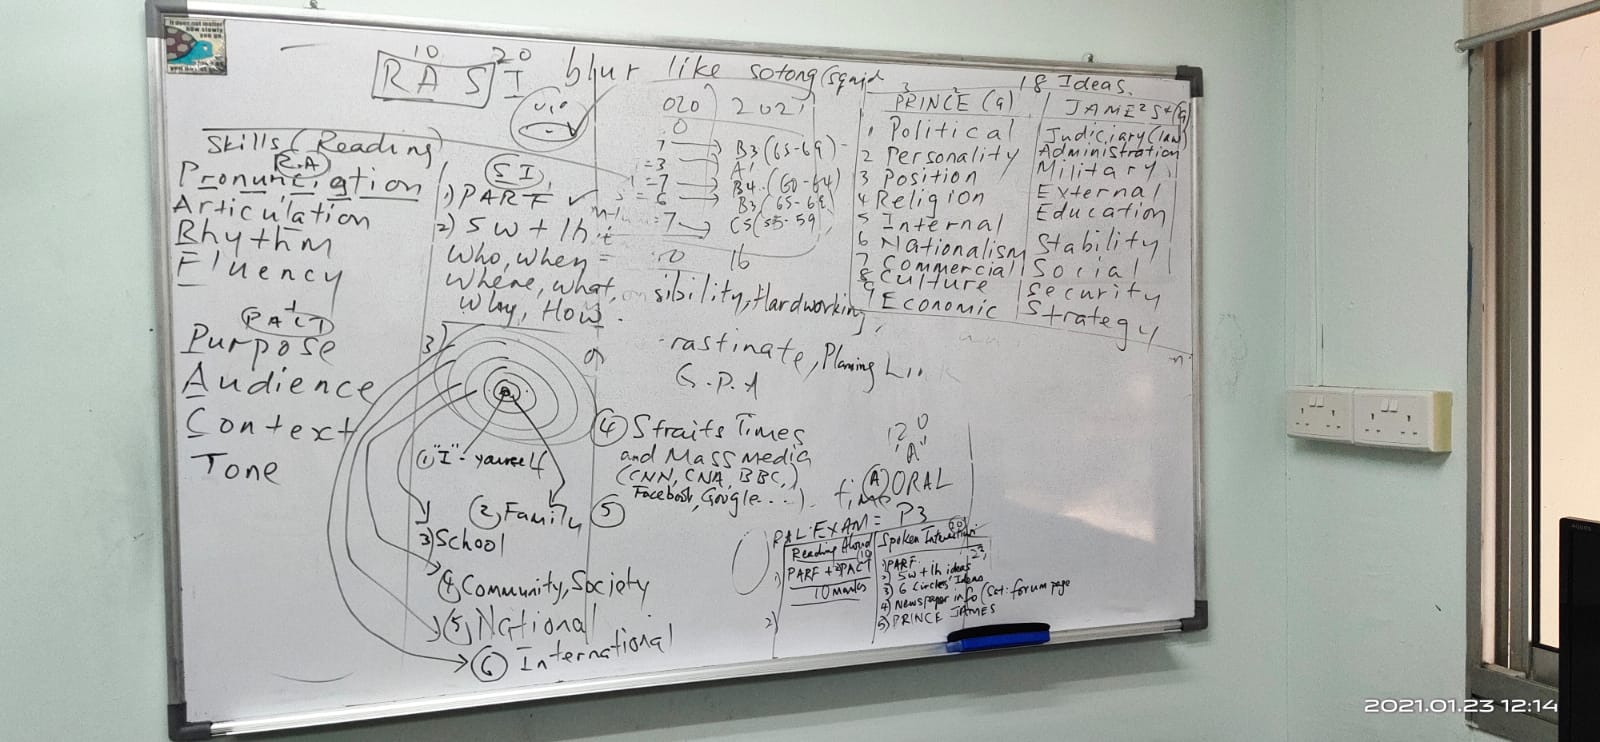 It does not matter
how slowly
you go
10 20
RAS I blur like sotong (squid
Skills (Reading)
R.A
Pronunciation
Articulation
Rhythm
Fluency
PACT
Purpose
Audience
Context
Tone
S I
1) PARF ✓
2) 5w + 1h
Who, when
Where, what,
Why, How.
3)
① "I" - yourself
② Family
3) School
④ Community, Society
⑤ National
⑥ International
020 2021
0
7 → B3 (65-69)
= 3 → A1
= 7 → B4 (60-64)
= 6 → B3 (65-69)
= 7 → C5 (55-59)
16
sibility, Hardworking,
rastinate, Planning Link
G.P.A
④ Straits Times
and Mass media
(CNN, CNA, BBC,
Facebook, Google....)
⑤
18 Ideas.
PRINCE (9)
1 Political
2 Personality
3 Position
4 Religion
5 Internal
6 Nationalism
7 Commercial
8 Culture
9 Economic
JAME²S⁴ (9)
Judiciary (law)
Administration
Military
External
Education
Stability
Social
Security
Strategy
"A"
(A) ORAL
RAL EXAM = P3
Reading Aloud (10
PARF + PACT
10 marks
2)
Spoken Interaction
1) PARF
2) 5w + 1h ideas
3) 6 Circles' Ideas
4) Newspaper info (Sat: forum page
5) PRINCE JAMES
2021.01.23 12:14